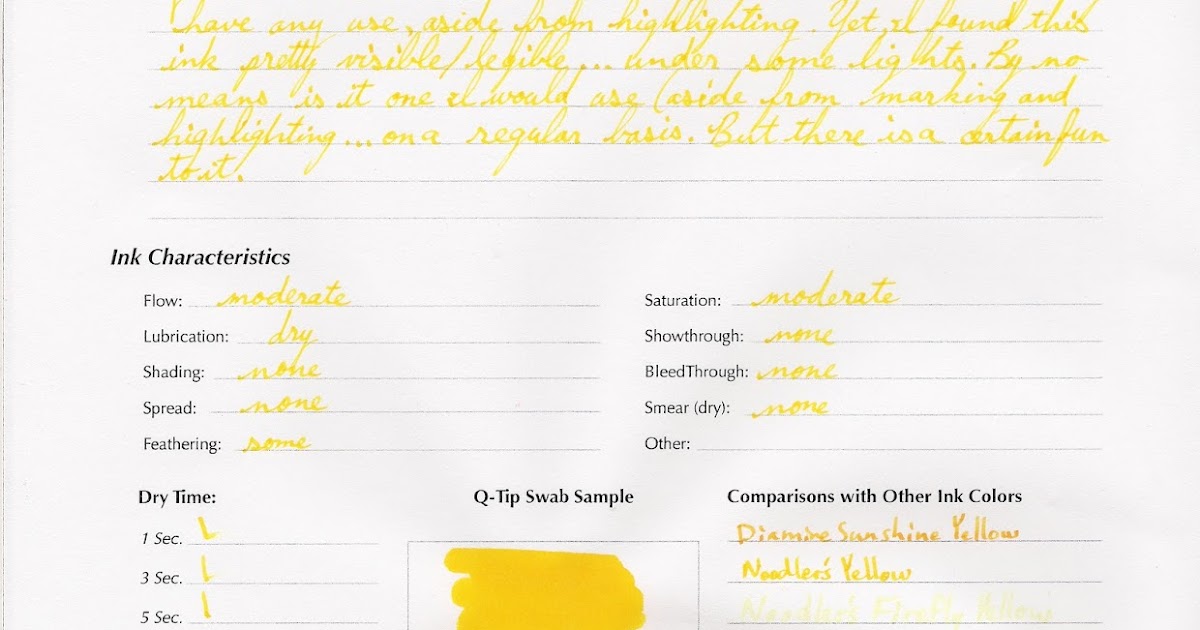 have any use, aside from highlighting. Yet, I found this
ink pretty visible/legible... under some lights. By no
means is it one I would use (aside from marking and
highlighting... on a regular basis. But there is a certain fun
to it.
Ink Characteristics
Flow: moderate
Saturation: moderate
Lubrication: dry
Showthrough: none
Shading: none
BleedThrough: none
Spread: none
Smear (dry): none
Feathering: some
Other:
Dry Time:
Q-Tip Swab Sample
Comparisons with Other Ink Colors
1 Sec.
Diamine Sunshine Yellow
3 Sec.
Noodler's Yellow
5 Sec.
Noodler's Firefly Yellow